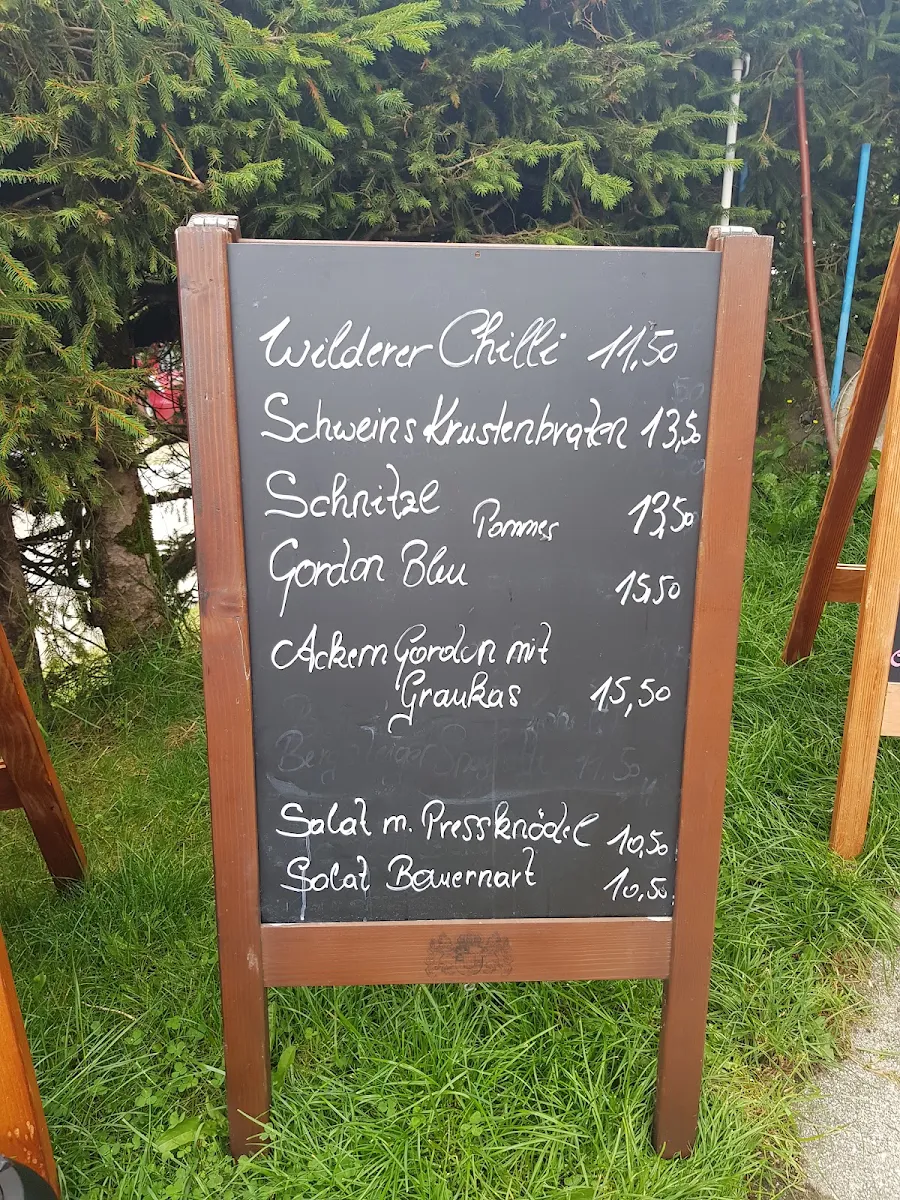 Wilderer Chilli 11,50
Schweins Krustenbraten 13,50
Schnitzl Pommes 13,50
Gordon Bleu 15,50
Ackern Gordon mit
Graukas 15,50
Salat m. Pressknödel 10,50
Salat Bauernart 10,50